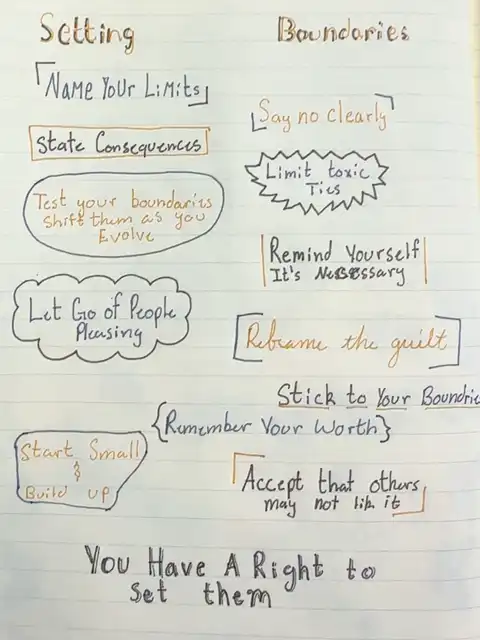 Setting Boundaries
Name Your Limits
Say no clearly
State Consequences
Limit toxic
Ties
Test your boundaries
Shift them as you
Evolve
Remind Yourself
It's Necessary
Let Go of People
Pleasing
Reframe the guilt
Stick to Your Boundrie
{Remember Your Worth}
Start Small
&
Build up
Accept that others
may not like it
You Have A Right to
Set them